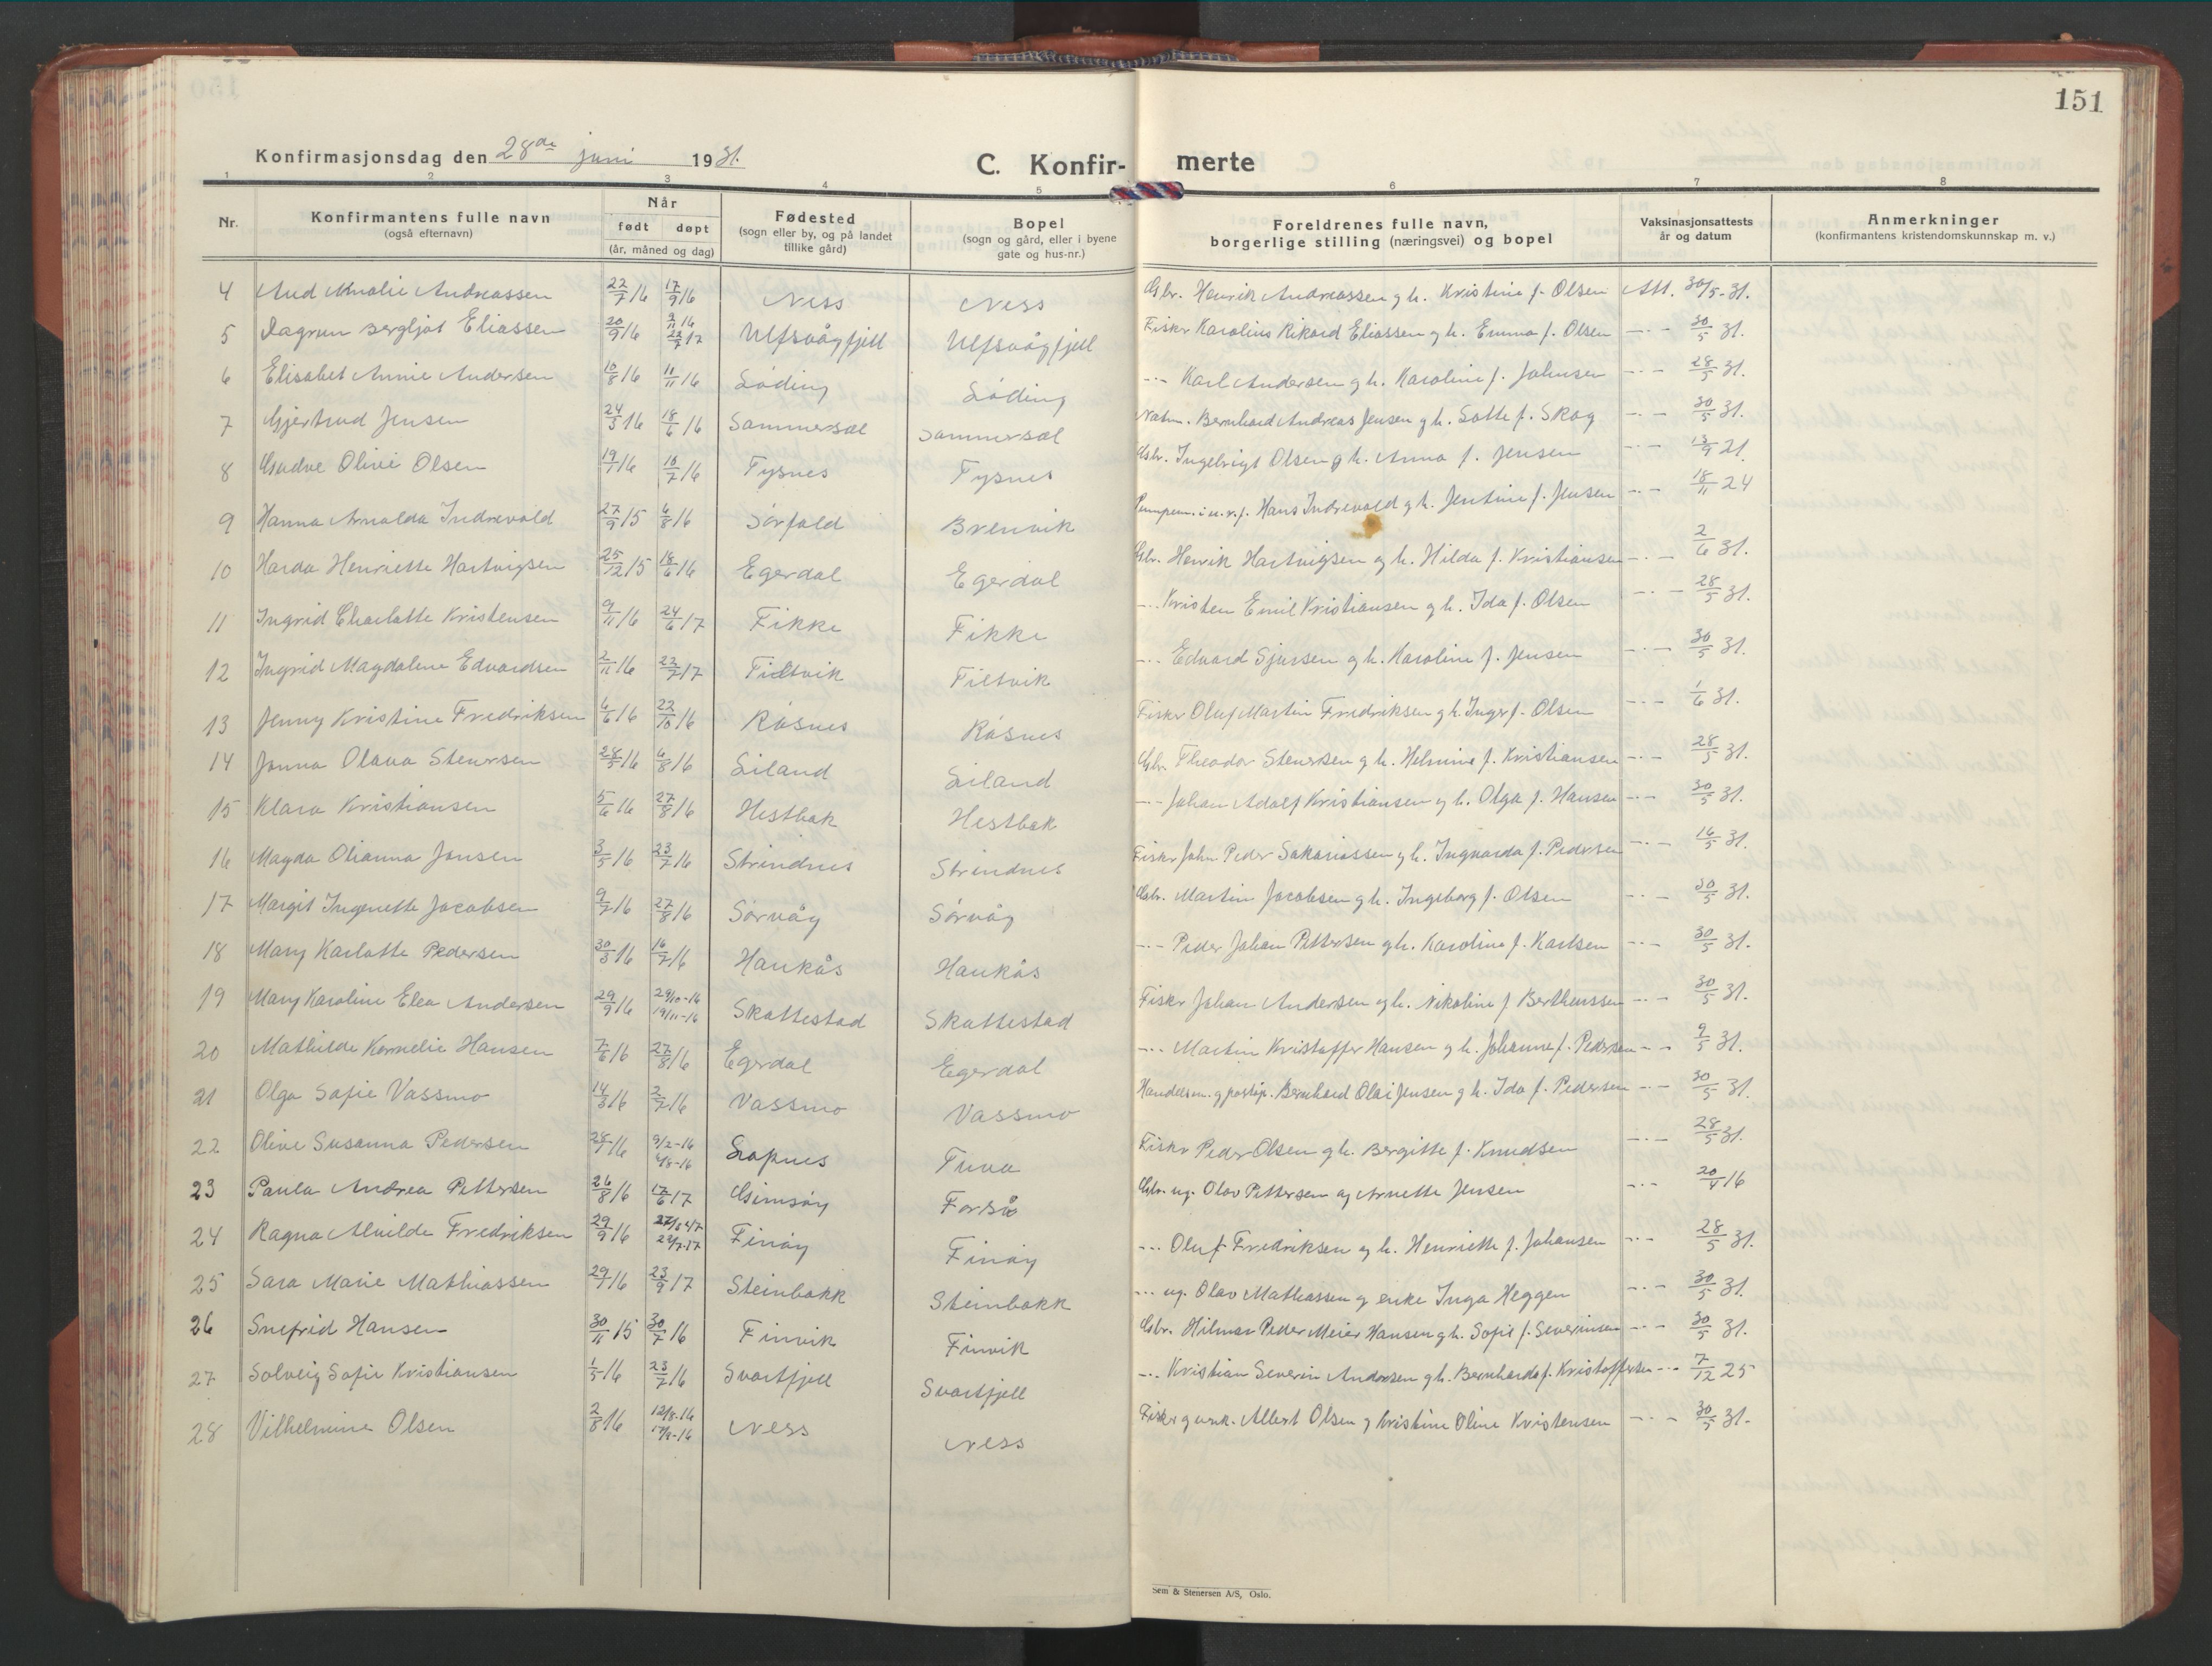 151
Konfirmasjonsdag den 28de juni 1931.
C. Konfir- merte
1 2 3 4 5 6 7 8
Nr.
Konfirmantens fulle navn
(også efternavn)
Når
født døpt
(år, måned og dag)
Fødested
(sogn eller by, og på landet
tillike gård)
Bopel
(sogn og gård, eller i byene
gate og hus-nr.)
Foreldrenes fulle navn,
borgerlige stilling (næringsvei) og bopel
Vaksinasjonsattests
år og datum
Anmerkninger
(konfirmantens kristendomskunnskap m. v.)
4 Aud Amalie Andreassen 22/7 16 17/9 16 Ness Ness Gbr. Henrik Andreassen g h. Kristine f. Olsen Att. 30/5-31.
5 Dagrun Bergljot Eliassen 20/9 16 9/11 16 22/7 17 Ulfsvågfjell Ulfsvågfjell Fisker Karolius Rikard Eliassen g h. Emma f. Olsen -.- 30/5 31.
6 Elisabet Annie Andersen 10/8 16 11/11 16 Løding Løding -.- Karl Andersen g h. Karoline f. Johnsen -.- 28/5 31.
7 Gjertrud Jensen 24/3 16 18/6 16 Sommersel Sommersel Bernhard Andreas Jensen g h. Lotte f. Skog -.- 30/5 31.
8 Gudve Olivi Olsen 19/1 16 16/7 16 Tysnes Tysnes Gbr. Ingebrigt Olsen g h. Anna f. Jensen -.- 13/9 21
9 Hanna Arnolda Indrevold 27/9 15 6/8 16 Sørfold Brenvik Hans Indrevold g h. Jentine f. Jensen -.- 18/11 24
10 Harda Henriette Hartvigsen 25/12 15 18/6 16 Egerdal Egerdal Gbr. Henrik Hartvigsen og h. Hilda f. Kristiansen -.- 2/6 31.
11 Ingrid Charlotte Kristensen 9/11 16 24/6 17 Fikke Fikke -.- Kristen Emil Kristiansen g h. Ida f. Olsen -.- 28/5 31.
12 Ingrid Magdalene Edvardsen 2/11 16 22/7 17 Filtvik Filtvik -.- Edvard Sjursen g h. Karoline f. Jensen -.- 30/5 31.
13 Jenny Kristine Fredriksen 6/6 16 22/10 16 Råsnes Råsnes Fisker Oluf Martin Fredriksen g h. Inger f. Olsen -.- 1/6 31.
14 Jonna Olava Stenersen 28/5 16 6/8 16 Leiland Leiland Gbr. Theodor Stenersen g h. Helmine f. Kristiansen -.- 28/5 31.
15 Klara Kristiansen 5/6 16 27/8 16 Hestbak Hestbak -.- Johan Adolf Kristiansen g h. Olga f. Hansen -.- 30/5 31.
16 Magda Olianna Jonsen 3/5 16 23/7 16 Strindnes Strindnes Fisker John Peder Sakariassen g h. Ingvarda f. Pedersen -.- 16/5 31.
17 Margit Ingenette Jacobsen 9/7 16 27/8 16 Sørvåg Sørvåg Gbr. Martin Jacobsen g h. Ingeborg f. Olsen -.- 30/5 31.
18 Mary Karlotte Pedersen 30/3 16 16/7 16 Haukås Haukås -.- Peder Johan Pettersen g h. Karoline f. Karlsen -.- 30/5 31.
19 Mary Karoline Elea Andersen 29/9 16 29/10-16 19/11-16 Skottestad Skottestad Fisker Johan Andersen g h. Nikoline f Bertheussen -.- 30/5 31.
20 Mathilde Kornelie Hansen 7/6 16 27/8 16 Egerdal Egerdal -.- Martin Kristoffer Hansen g h. Johanne f. Pedersen -.- 9/5 31.
21 Olga Sofie Vassmo 14/3 16 2/7 16 Vassmo Vassmo Handelsm. g postop. Bernhard Olai Jensen g h. Ida f. Pedersen -.- 30/5 31.
22 Olive Susanna Pedersen 28/1 16 9/2-16 6/8-16 Lapnes Tuva Fisker Peder Olsen g h. Bergitte f. Knudsen -.- 28/5 31.
23 Paula Andrea Pettersen 26/8 16 17/6 17 Gimsøy Forså Gbr. ug. Olav Pettersen og Arnette Jensen -.- 20/4 16
24 Ragna Alvilde Fredriksen 29/9 16 22/7-17 Finøy Finøy -.- Oluf Fredriksen g h. Henriette f. Johansen -.- 28/5 31.
25 Sara Marie Mathiassen 29/1 16 23/9 17 Steinbakk Steinbakk -.- ug. Olav Mathiassen g enke Inga Heggen -.- 30/5 31.
26 Snefrid Hansen 30/11 15 30/7 16 Finvik Finvik Gbr. Hilmar Peder Meier Hansen g h. Sofie f. Severinsen -.- 30/5 31.
27 Solveig Sofie Kristiansen 1/5 16 23/7 16 Svartfjell Svartfjell -.- Kristian Severin Andersen g h. Bernharda f. Kristoffersen -.- 7/12 25
28 Vilhelmine Olsen 2/8 16 12/8-16 17/9-16 Ness Ness Fisker g unk. Albert Olsen g Kristine Oline Kristensen -.- 30/5 31.
Sem & Stenersen A/S, Oslo.